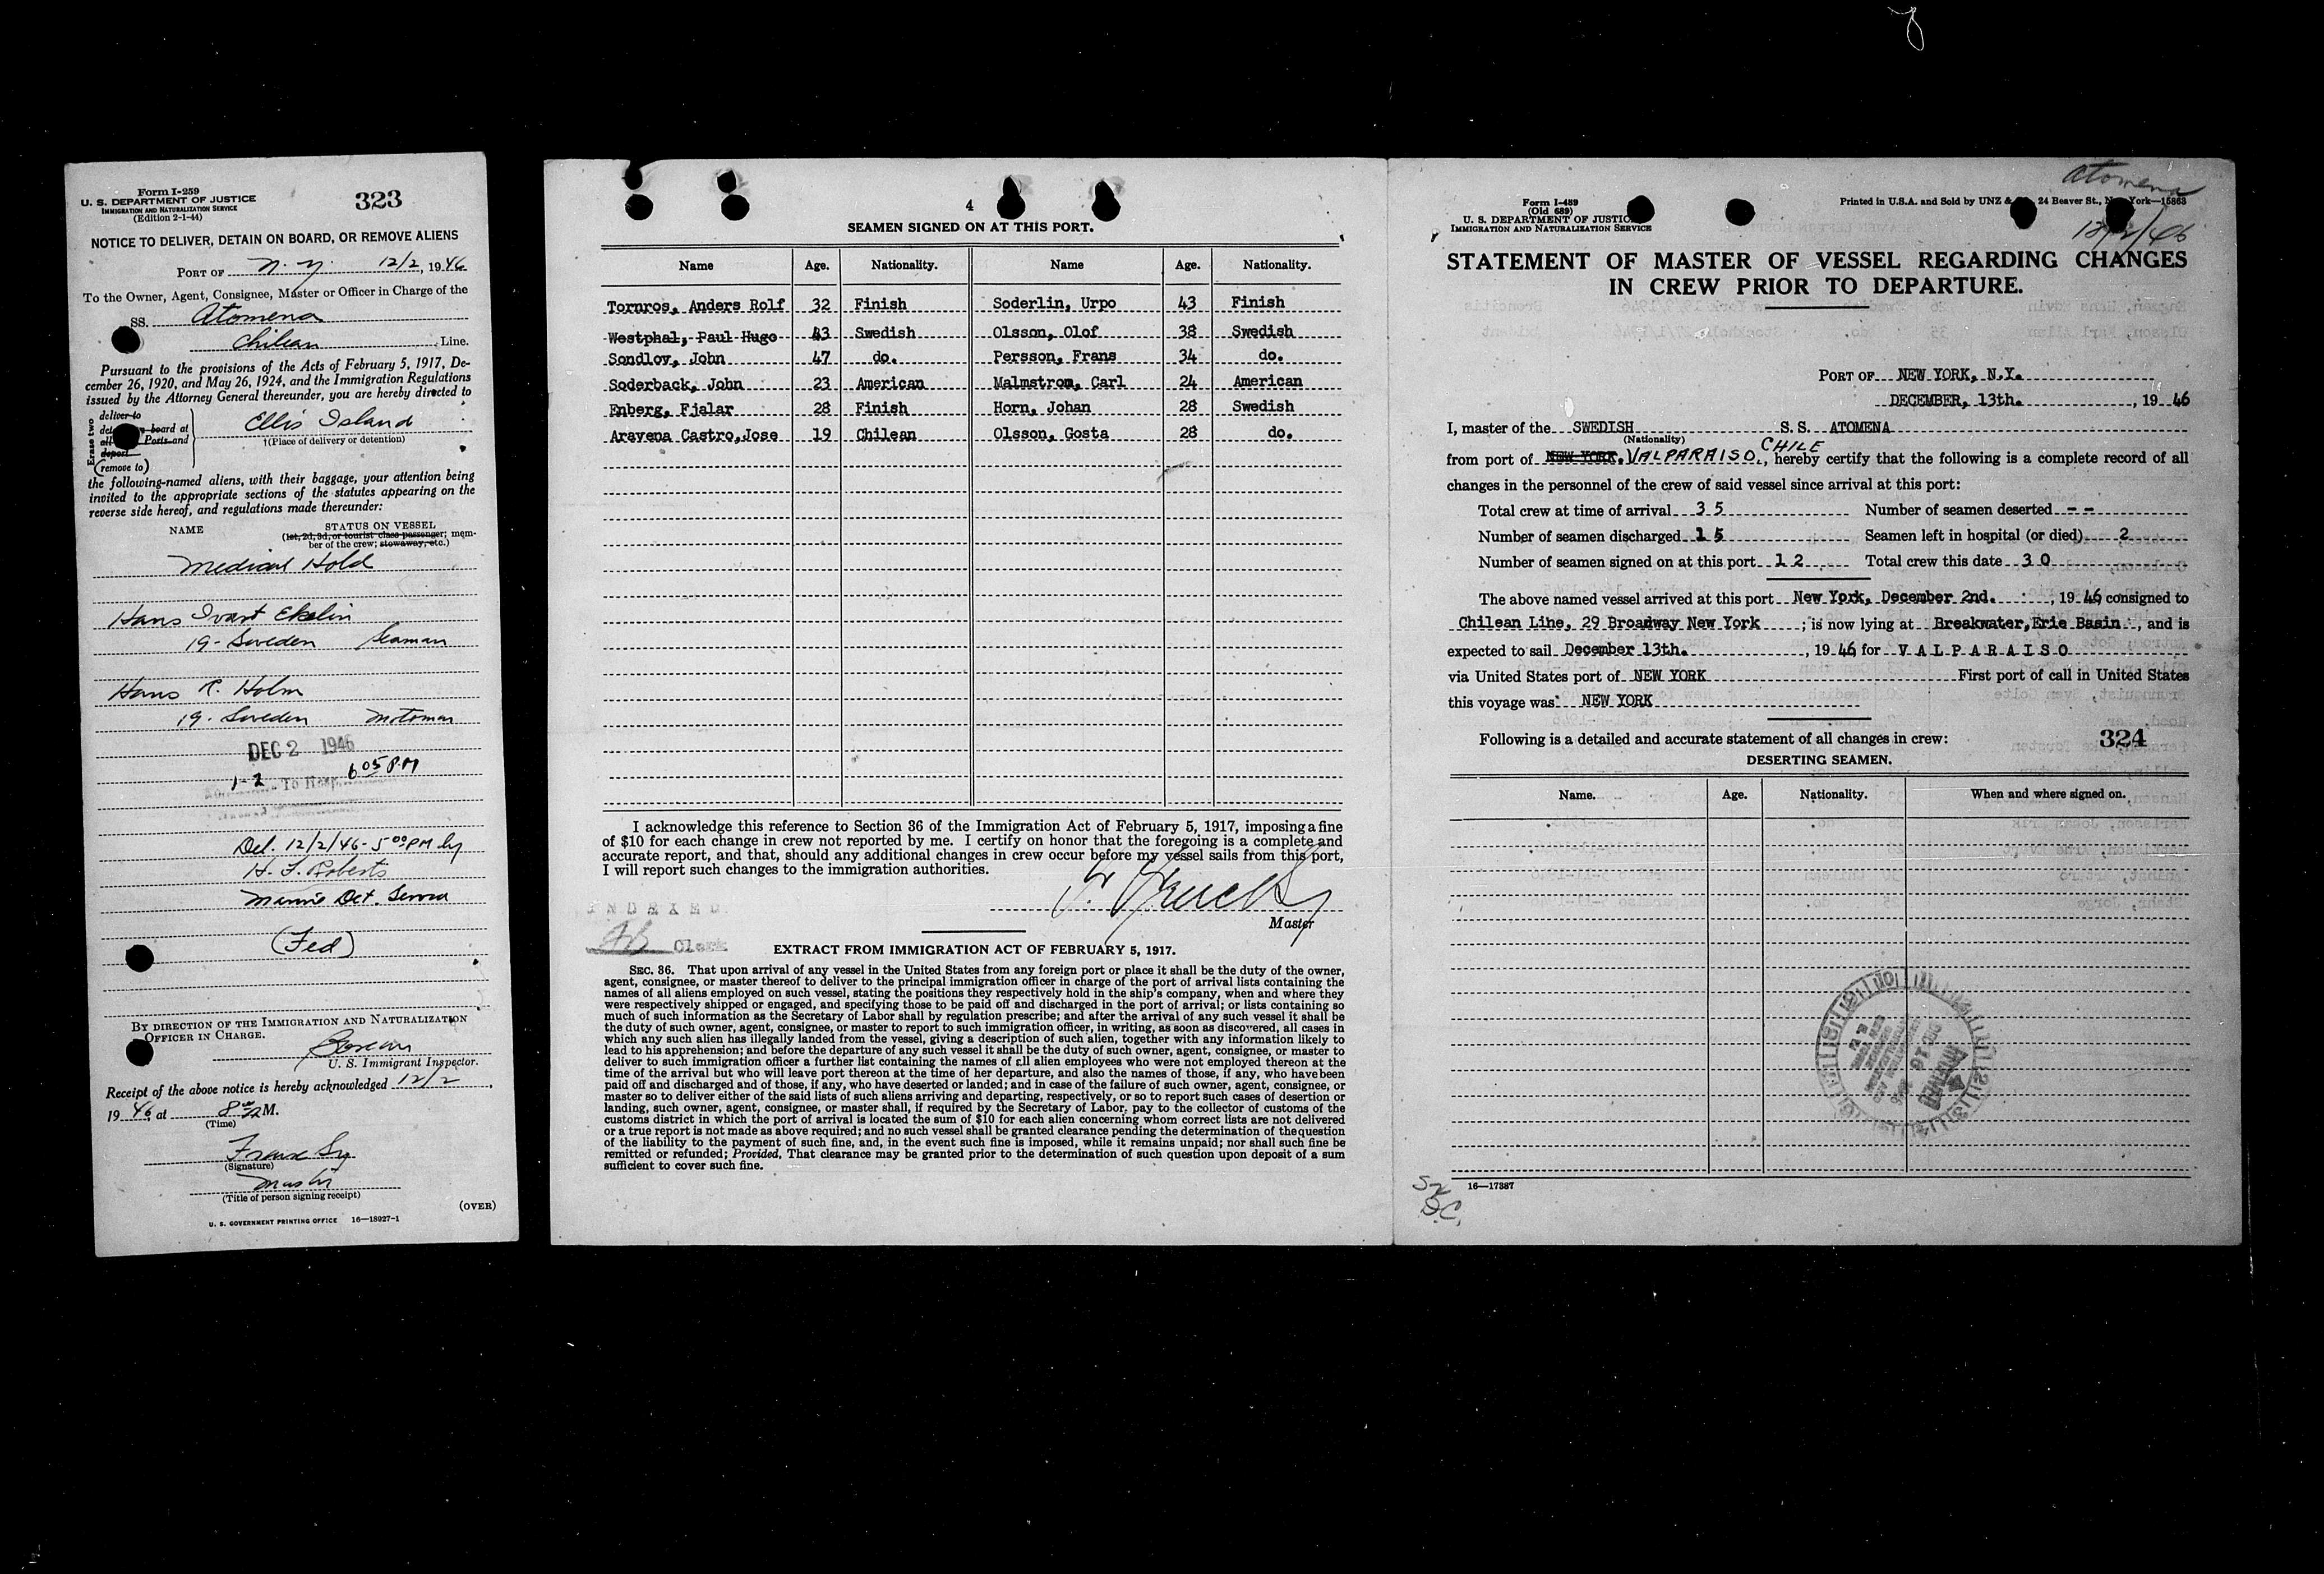 Form I-259
U. S. DEPARTMENT OF JUSTICE
IMMIGRATION AND NATURALIZATION SERVICE
(Edition 2-1-44)
323
NOTICE TO DELIVER, DETAIN ON BOARD, OR REMOVE ALIENS
PORT OF N. Y. 12/2, 1946
To the Owner, Agent, Consignee, Master or Officer in Charge of the
SS. Atomena
Chilean Line.
Pursuant to the provisions of the Acts of February 5, 1917, De-
cember 26, 1920, and May 26, 1924, and the Immigration Regulations
issued by the Attorney General thereunder, you are hereby directed to
Erase two
deliver to
board at
Ports and
deport
(remove to)
Ellis Island
(Place of delivery or detention)
the following-named aliens, with their baggage, your attention being
invited to the appropriate sections of the statutes appearing on the
reverse side hereof, and regulations made thereunder:
NAME STATUS ON VESSEL
(1st, 2d, 3d, or tourist class passenger; mem-
ber of the crew; stowaway, etc.)
Medical Hold
Hans Ivart Ekelin
19 - Sweden Seaman
Hans R. Holm
19 - Sweden Motoman
DEC 2 1946
1-2 To Hosp. 6 05 P.M
Del. 12/2/46 - 5 00 PM by
H. F. Roberts
Det.
(Fed)
BY DIRECTION OF THE IMMIGRATION AND NATURALIZATION
OFFICER IN CHARGE.
U. S. Immigrant Inspector.
Receipt of the above notice is hereby acknowledged 12/2,
1946 at 8 M.
(Time)
(Signature)
Master
(Title of person signing receipt)
(OVER)
U. S. GOVERNMENT PRINTING OFFICE 16—18927-1
4
SEAMEN SIGNED ON AT THIS PORT.
Name Age. Nationality. Name Age. Nationality.
Tornros, Anders Rolf 32 Finish Soderlin, Urpo 43 Finish
Westphal, Paul Hugo 43 Swedish Olsson, Olof 38 Swedish
Sondlov, John 47 do. Persson, Frans 34 do.
Soderback, John 23 American Malmstrom, Carl 24 American
Enberg, Fjalar 28 Finish Horn, Johan 28 Swedish
Aravena Castro,Jose 19 Chilean Olsson, Gosta 28 do.
I acknowledge this reference to Section 36 of the Immigration Act of February 5, 1917, imposing a fine
of $10 for each change in crew not reported by me. I certify on honor that the foregoing is a complete and
accurate report, and that, should any additional changes in crew occur before my vessel sails from this port,
I will report such changes to the immigration authorities.
Master
INDEXED
Clerk
EXTRACT FROM IMMIGRATION ACT OF FEBRUARY 5, 1917.
SEC. 36. That upon arrival of any vessel in the United States from any foreign port or place it shall be the duty of the owner,
agent, consignee, or master thereof to deliver to the principal immigration officer in charge of the port of arrival lists containing the
names of all aliens employed on such vessel, stating the positions they respectively hold in the ship's company, when and where they
were respectively shipped or engaged, and specifying those to be paid off and discharged in the port of arrival; or lists containing so
much of such information as the Secretary of Labor shall by regulation prescribe; and after the arrival of any such vessel it shall be
the duty of such owner, agent, consignee, or master to report to such immigration officer, in writing, as soon as discovered, all cases in
which any such alien has illegally landed from the vessel, giving a description of such alien, together with any information likely to
lead to his apprehension; and before the departure of any such vessel it shall be the duty of such owner, agent, consignee, or master to
deliver to such immigration officer a further list containing the names of all alien employees who were not employed thereon at the
time of the arrival but who will leave port thereon at the time of her departure, and also the names of those, if any, who have been
paid off and discharged and of those, if any, who have deserted or landed; and in case of the failure of such owner, agent, consignee, or
master so to deliver either of the said lists of such aliens arriving and departing, respectively, or so to report such cases of desertion or
landing, such owner, agent, consignee, or master shall, if required by the Secretary of Labor, pay to the collector of customs of the
customs district in which the port of arrival is located the sum of $10 for each alien concerning whom correct lists are not delivered
or a true report is not made as above required; and no such vessel shall be granted clearance pending the determination of the question
of the liability to the payment of such fine, and, in the event such fine is imposed, while it remains unpaid; nor shall such fine be
remitted or refunded; Provided, That clearance may be granted prior to the determination of such question upon deposit of a sum
sufficient to cover such fine.
Atomena
12/2/46
Form I-489
(Old 689)
U. S. DEPARTMENT OF JUSTICE
IMMIGRATION AND NATURALIZATION SERVICE
Printed in U.S.A. and Sold by UNZ & 24 Beaver St., New York—15863
STATEMENT OF MASTER OF VESSEL REGARDING CHANGES
IN CREW PRIOR TO DEPARTURE.
PORT OF NEW YORK, N.Y.
DECEMBER, 13th., 1946
I, master of the SWEDISH S. S. ATOMENA
(Nationality)
from port of NEW YORK. VALPARAISO, CHILE, hereby certify that the following is a complete record of all
changes in the personnel of the crew of said vessel since arrival at this port:
Total crew at time of arrival 35 Number of seamen deserted --
Number of seamen discharged 15 Seamen left in hospital (or died) 2
Number of seamen signed on at this port 12 Total crew this date 30
The above named vessel arrived at this port New York, December 2nd., 1946 consigned to
Chilean Line, 29 Broadway New York; is now lying at Breakwater,Erie Basin, and is
expected to sail December 13th., 1946 for VALPARAISO
via United States port of NEW YORK First port of call in United States
this voyage was: NEW YORK
Following is a detailed and accurate statement of all changes in crew:
324
DESERTING SEAMEN.
Name. Age. Nationality. When and where signed on.
16—17387
D.C.